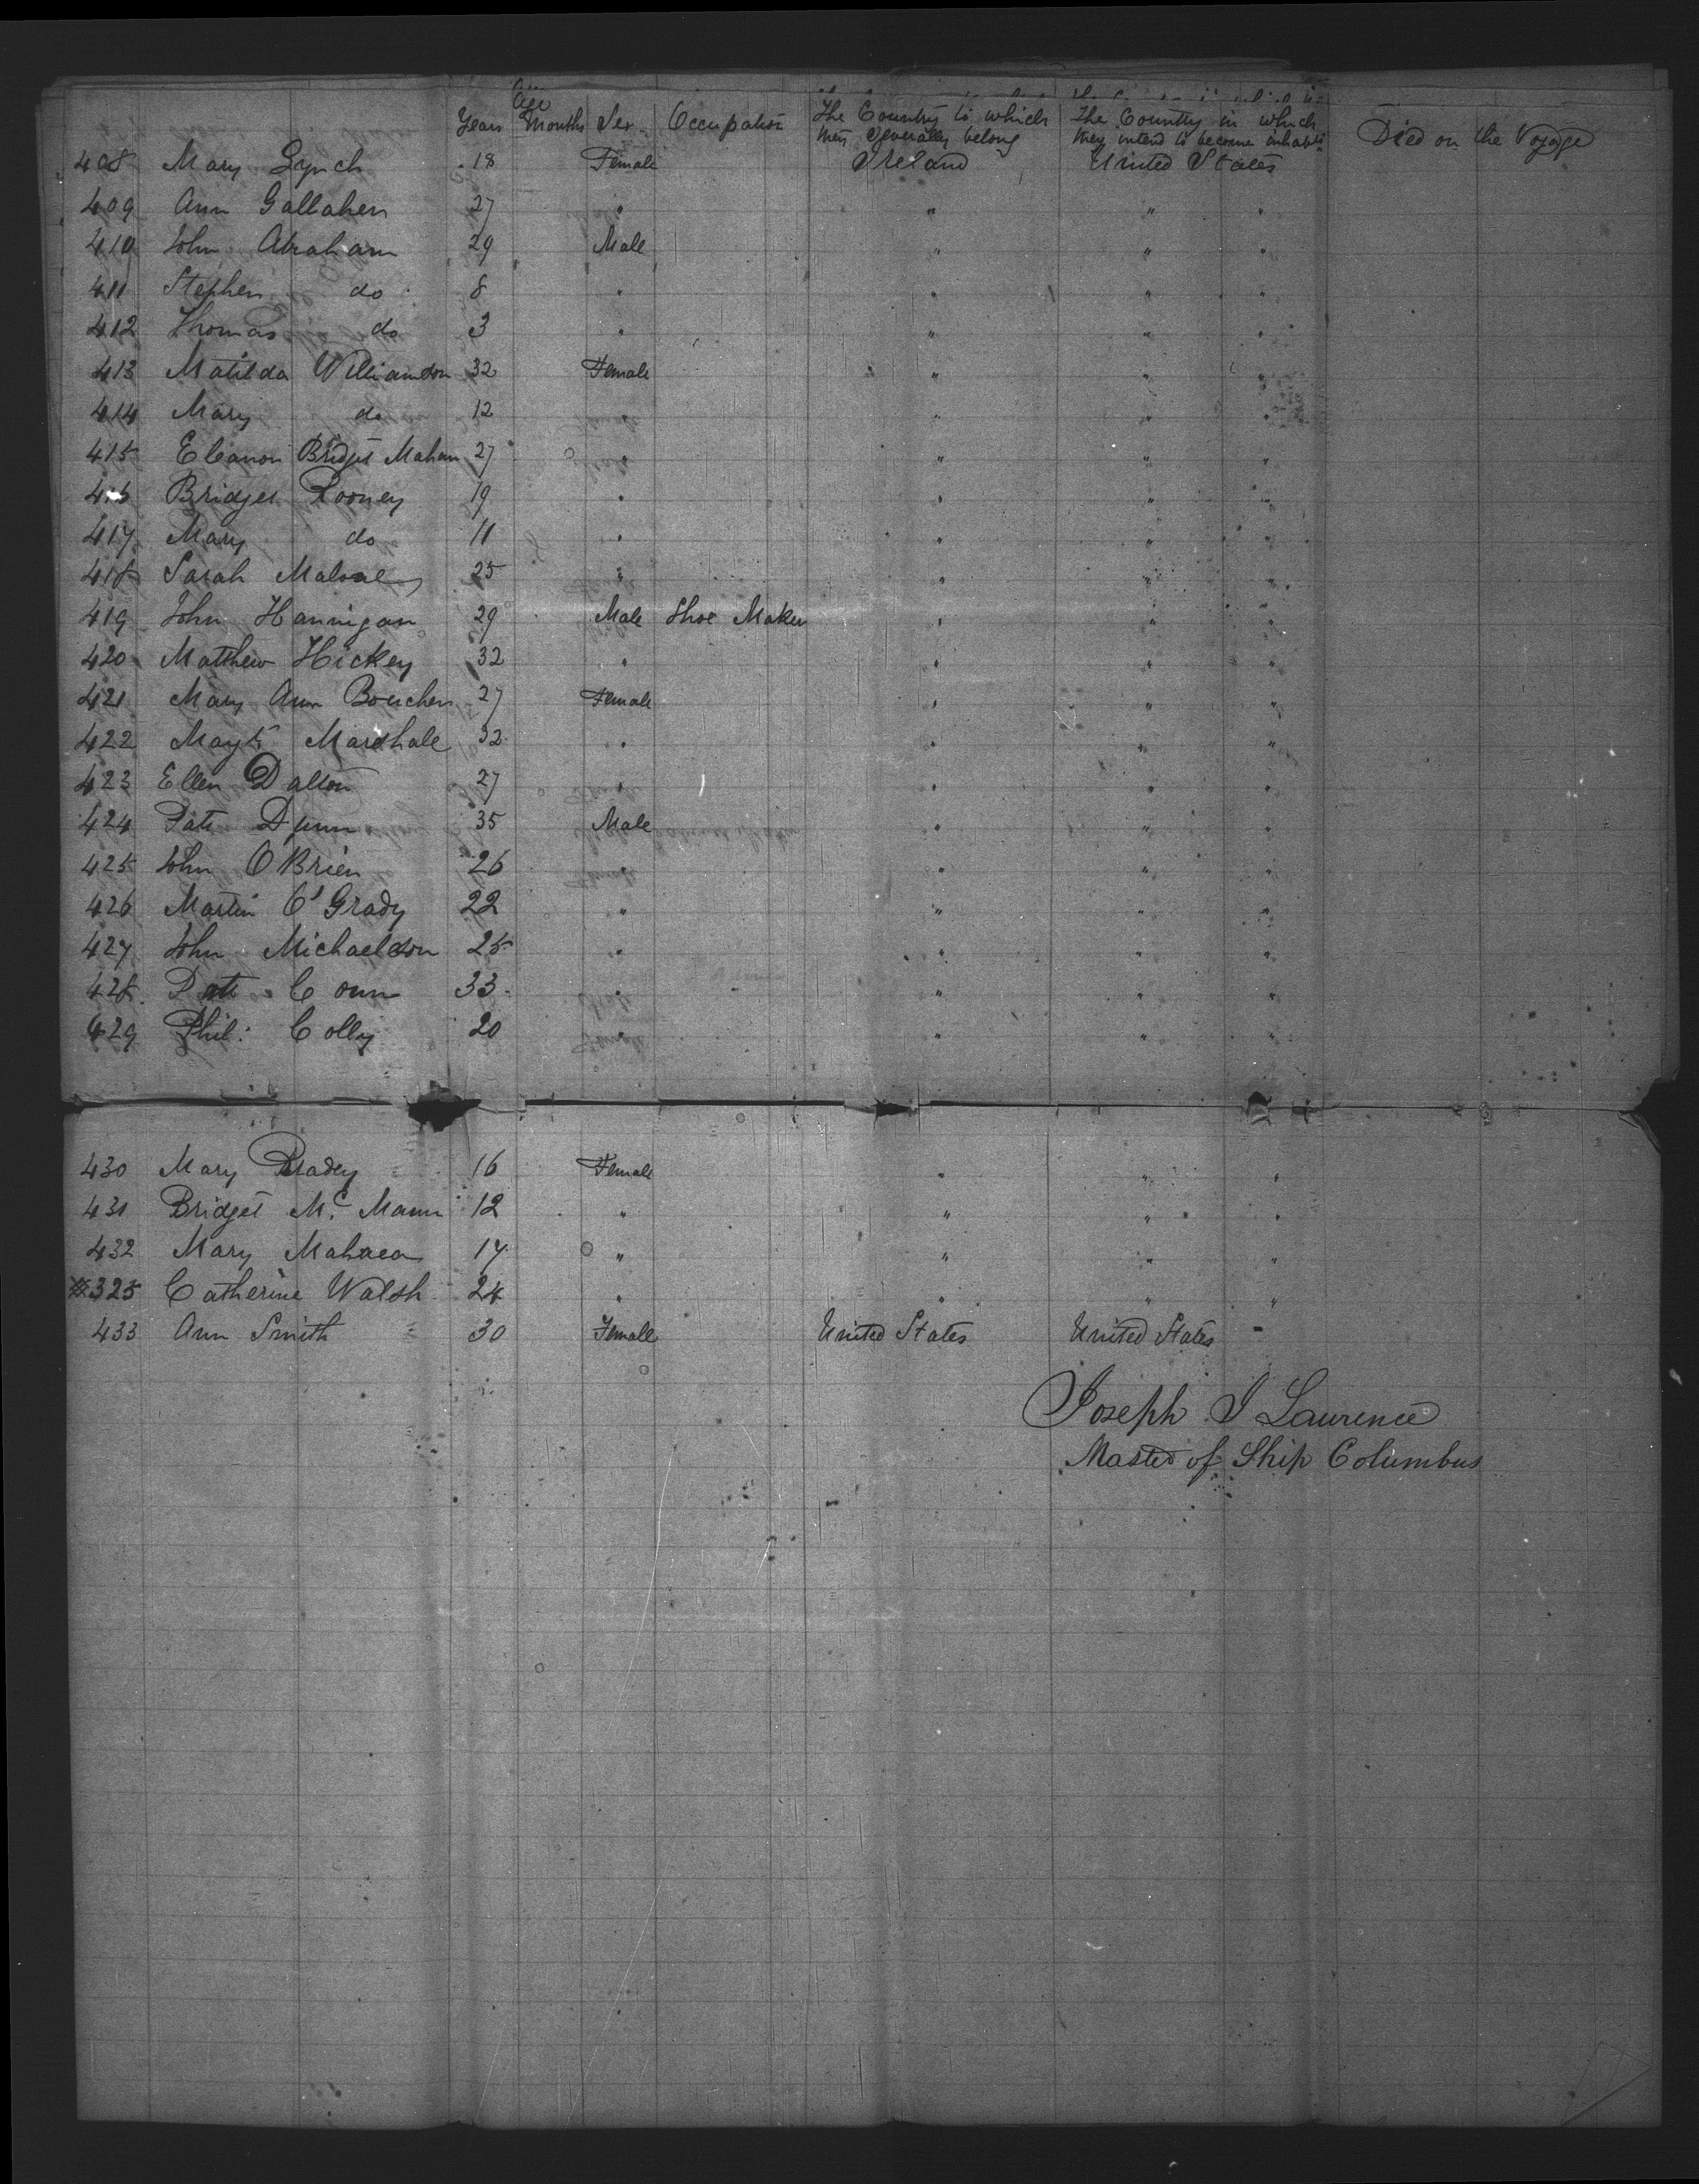 Age
Years Months Sex Occupation The Country to which they Generally belong The Country in which they intend to become inhabits Died on the Voyage
408 Mary Lynch 18 Female Ireland United States
409 Ann Gallaher 27 " " " "
410 John Abraham 29 Male " " "
411 Stephen do 8 " " " "
412 Thomas do 3 " " " "
413 Matilda Williamson 32 Female " " "
414 Mary do 12 " " " "
415 Eleanor Bridget Mahan 27 " " " "
416 Bridget Rooney 19 " " " "
417 Mary do 11 " " " "
418 Sarah 25 " " " "
419 John Hannigan 29 Male Shoe Maker " " "
420 Matthew Hickey 32 " " " "
421 Mary Ann Boucher 27 Female " " "
422 Magt Marshall 32 " " " "
423 Ellen Dalton 27 " " " "
424 Patk Dunn 35 Male " " "
425 John O Brien 26 " " " "
426 Martin O'Grady 22 " " " "
427 John Michaelson 25 " " " "
428 Patk Conn 33 " " " "
429 Phil: Colly 20 " " " "
430 Mary Bradey 16 Female " " "
431 Bridget Mc Mann 12 " " " "
432 Mary 17 " " " "
325 Catherine Walsh 24 " " " "
433 Ann Smith 30 Female United States United States "
Joseph J Lawrence
Master of Ship Columbus